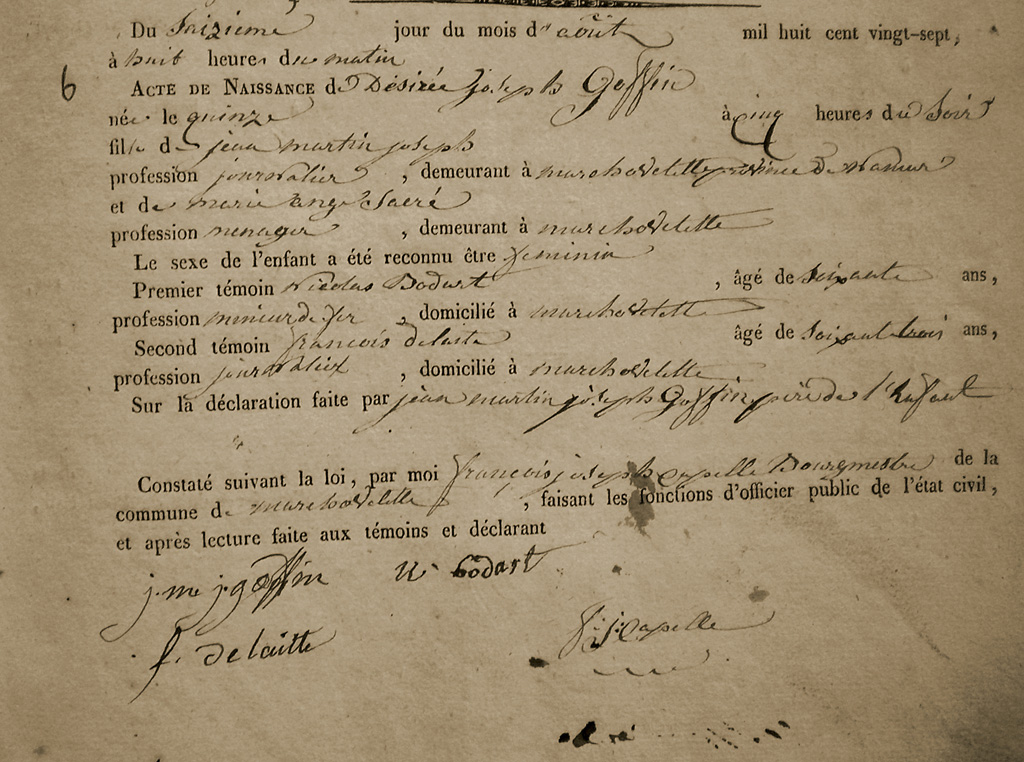 Du Saizieme jour du mois d'août mil huit cent vingt-sept,
à huit heures du matin
6 ACTE DE NAISSANCE de Désirée joseph Goffin
née le quinze à cinq heures du Soir
fille de jean martin joseph
profession journalier, demeurant à marchovelette province de namur
et de marie ange Sacré
profession menager, demeurant à marchovelette
Le sexe de l'enfant a été reconnu être feminin
Premier témoin Nicolas Bodart, âgé de soixante ans,
profession mineur de fer, domicilié à marchovelette
Second témoin françois delaite âgé de soixante trois ans,
profession journalier, domicilié à marchovelette
Sur la déclaration faite par jean martin joseph Goffin, père de l'Enfant
Constaté suivant la loi, par moi françois joseph capelle Bourgmestre de la
commune de marchovelette, faisant les fonctions d'officier public de l'état civil,
et après lecture faite aux témoins et déclarant
j. m j. goffin n bodart
f. delaitte f: j: Capelle